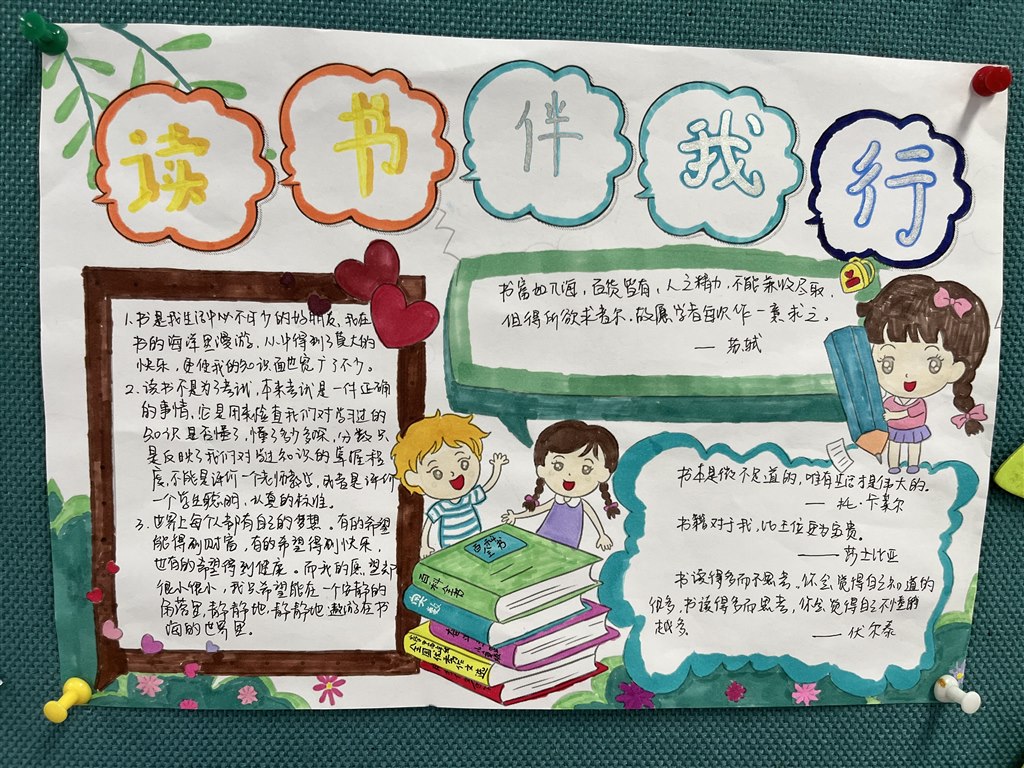 读书伴我行
1.书是我生活中必不可少的好朋友,我在
书的海洋里漫游,从中得到了莫大的
快乐,还使我的知识面也宽广了不少。
2.读书不是为了考试,本来考试是一件正确
的事情,它是用来检查我们对学习过的
知识是否懂了,懂了多少多深,分数只
是反映了我们对学过知识的掌握程
度,不能是评价一个老师教学,或者是评价
一个学生聪明,认真的标准。
3.世界上每个人都有自己的梦想。有的希望
能得到财富,有的希望得到快乐,
也有的希望得到健康。而我的愿望却
很小很小,我只希望能在一个安静的
角落里,静静地,静静地遨游在书
海的世界里。
书富如入海,百货皆有,人之精力,不能兼收尽取,
但得所欲求者尔,故愿学者每次作一意求之。
— 苏轼
书本是微不足道的,唯有生活才是伟大的。
— 托·卡莱尔
书籍对于我,比王位更为宝贵。
——莎士比亚
书读得多而不思考,你会觉得自己知道的
很多,书读得多而思考,你会觉得自己不懂的
越多。
— 伏尔泰
百科全书
百科全书
全国优秀作文选